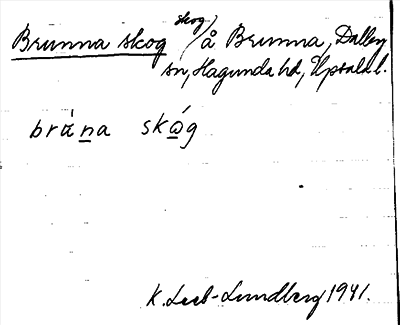 Brunna skog skog/ å Brunna, Dalby
sn, Hagunda hd, Upsala l.
brάn̲a skώ̲g
K. Leeb-Lundberg 1941.